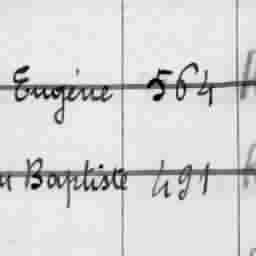 Eugéne 564
Baptiste 491